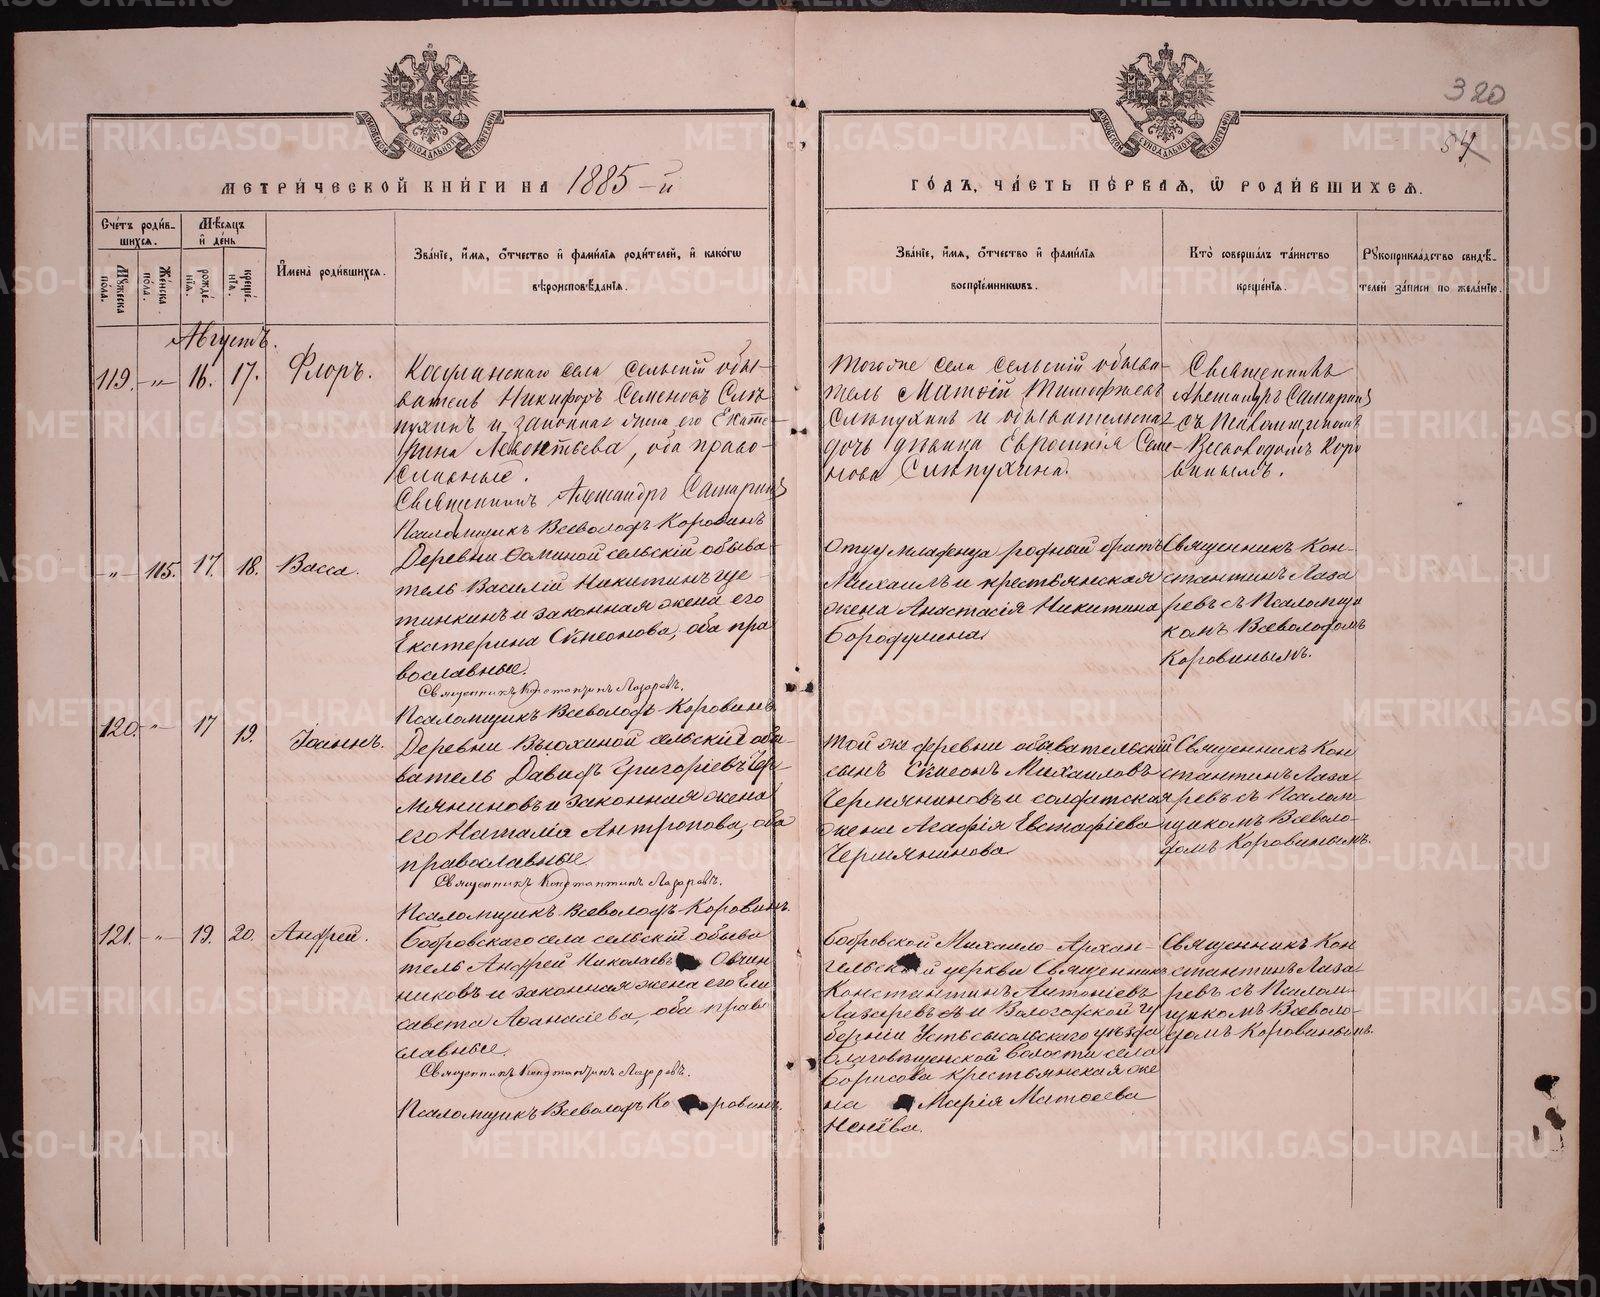 320
54
МЕТРИ́ЧЕСКОЙ КНИ́ГИ НА 1885-й
ГО́ДЪ, ЧА́СТЬ ПЕ́РВАЯ, Ѡ РОДИ́ВШИХСЯ.
Сче́тъ роди́вшихся.
Мѣ́сяцъ и де́нь
Мꙋ́жеска по́ла.
Же́нска по́ла.
рожде́нїя.
креще́нїя.
Имена̀ роди́вшихся.
Зва́нїе, и́мя, о́тчество и фами́лїя роди́телей, и како́гѡ
вѣроисповѣ́данїя.
Зва́нїе, и́мя, о́тчество и фами́лїя
воспрїе́мникѡвъ.
Кто̀ соверша́лъ та́инство
креще́нїя.
Рꙋкоприкла́дство свидѣ́-
телей за́писи по жела́нїю.
Августъ.
119. -"- 16. 17. Флоръ.
села сельскій обы-
ватель Никифоръ Семеновъ Слѣ
пухинъ и законная жена его Екате-
рина Леонтьева, оба право-
славные.
Священникъ Александръ Самаринъ
Псаломщикъ Всеволодъ Коровинъ
Тогоже села сельскій обыва-
тель Матѳій Тимофѣевъ
Слѣпухинъ и обывательская
дочь дѣвица Евросинія Семе-
нова Слѣпухина.
Священникъ
Александръ Самаринъ
съ Псаломщикомъ
Всеволодомъ Коро
винымъ.
-"- 115. 17. 18. Васса.
Деревни Фоминой сельскій обыва-
тель Василій Никитинъ Ще-
тинкинъ и законная жена его
Екатерина Сѵмеонова, оба пра
вославные.
Священникъ Константинъ Лазаревъ.
Псаломщикъ Всеволодъ Коровинъ.
Отцу младенца родный братъ
Михаилъ и крестьянская
жена Анастасія Никитина
Бородулина
Священникъ Кон-
стантинъ Лаза
ревъ съ Псаломщи
комъ Всеволодомъ
Коровинымъ.
120. -"- 17 19. Іоаннъ.
Деревни Вьюхиной сельскій обы-
ватель Давидъ Григоріевъ Чер-
мяниновъ и законная жена
его Наталія Антропова, оба
православные
Священникъ Константинъ Лазаревъ.
Псаломщикъ Всеволодъ Коровинъ.
Той же деревни обывательскій
сынъ Сѵмеонъ Михаиловъ
Чермяниновъ и солдатская
жена Агафія Евстафіева
Чермянинова
Священникъ Кон
стантинъ Лаза-
ревъ съ Псалом-
щикомъ Всеволо-
домъ Коровинымъ.
121. -"- 19. 20. Андрей.
Бобровскаго села сельскій обыва
тель Андрей Николаевъ Овчин
никовъ и законная жена его Ели
савета Аѳанасіева, оба право
славные.
Священникъ Константинъ Лазаревъ.
Псаломщикъ Всеволодъ Коровинъ.
Бобровской Михаило-Архан-
гельской церкви Священникъ
Константинъ Антоніевъ
Лазаревъ и Вологодской гу
берніи Устьсысольскаго уѣзда
Благовѣщенской волости села
Борисова крестьянская же
на Марія Матѳеева
Ненёва.
Священникъ Кон
стантинъ Лаза-
ревъ съ Псалом-
щикомъ Всеволо-
домъ Коровинымъ.
METRIKI.GASO-URAL.RU